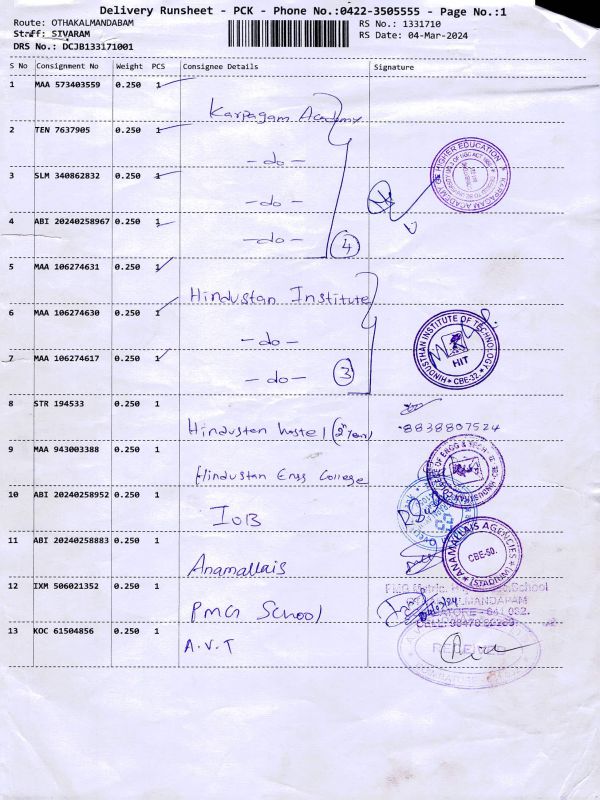 Delivery Runsheet - PCK - Phone No.:0422-3505555 - Page No.:1
Route: OTHAKALMANDABAM
RS No.: 1331710
Staff: SIVARAM
RS Date: 04-Mar-2024
DRS No.: DCJB133171001
S No Consignment No Weight PCS Consignee Details Signature
1 MAA 573403559 0.250 1
Karpagam Academy
2 TEN 7637905 0.250 1
-do-
3 SLM 340862832 0.250 1
-do-
4 ABI 20240258967 0.250 1
-do- 4
5 MAA 106274631 0.250 1
Hindustan Institute
6 MAA 106274630 0.250 1
-do-
7 MAA 106274617 0.250 1
-do- 3
HINDUSTHAN INSTITUTE OF TECHNOLOGY
HIT
CBE-32.
8 STR 194533 0.250 1
Hindustan hostel (2n Year)
8838807524
9 MAA 943003388 0.250 1
Hindustan Engg College
10 ABI 20240258952 0.250 1
IOB
11 ABI 20240258883 0.250 1
Anamallais
ANAMALLAIS AGENCIES
CBE-50.
(STADIUM)
12 IXM 506021352 0.250 1
PMG School
13 KOC 61504856 0.250 1
A.V.T